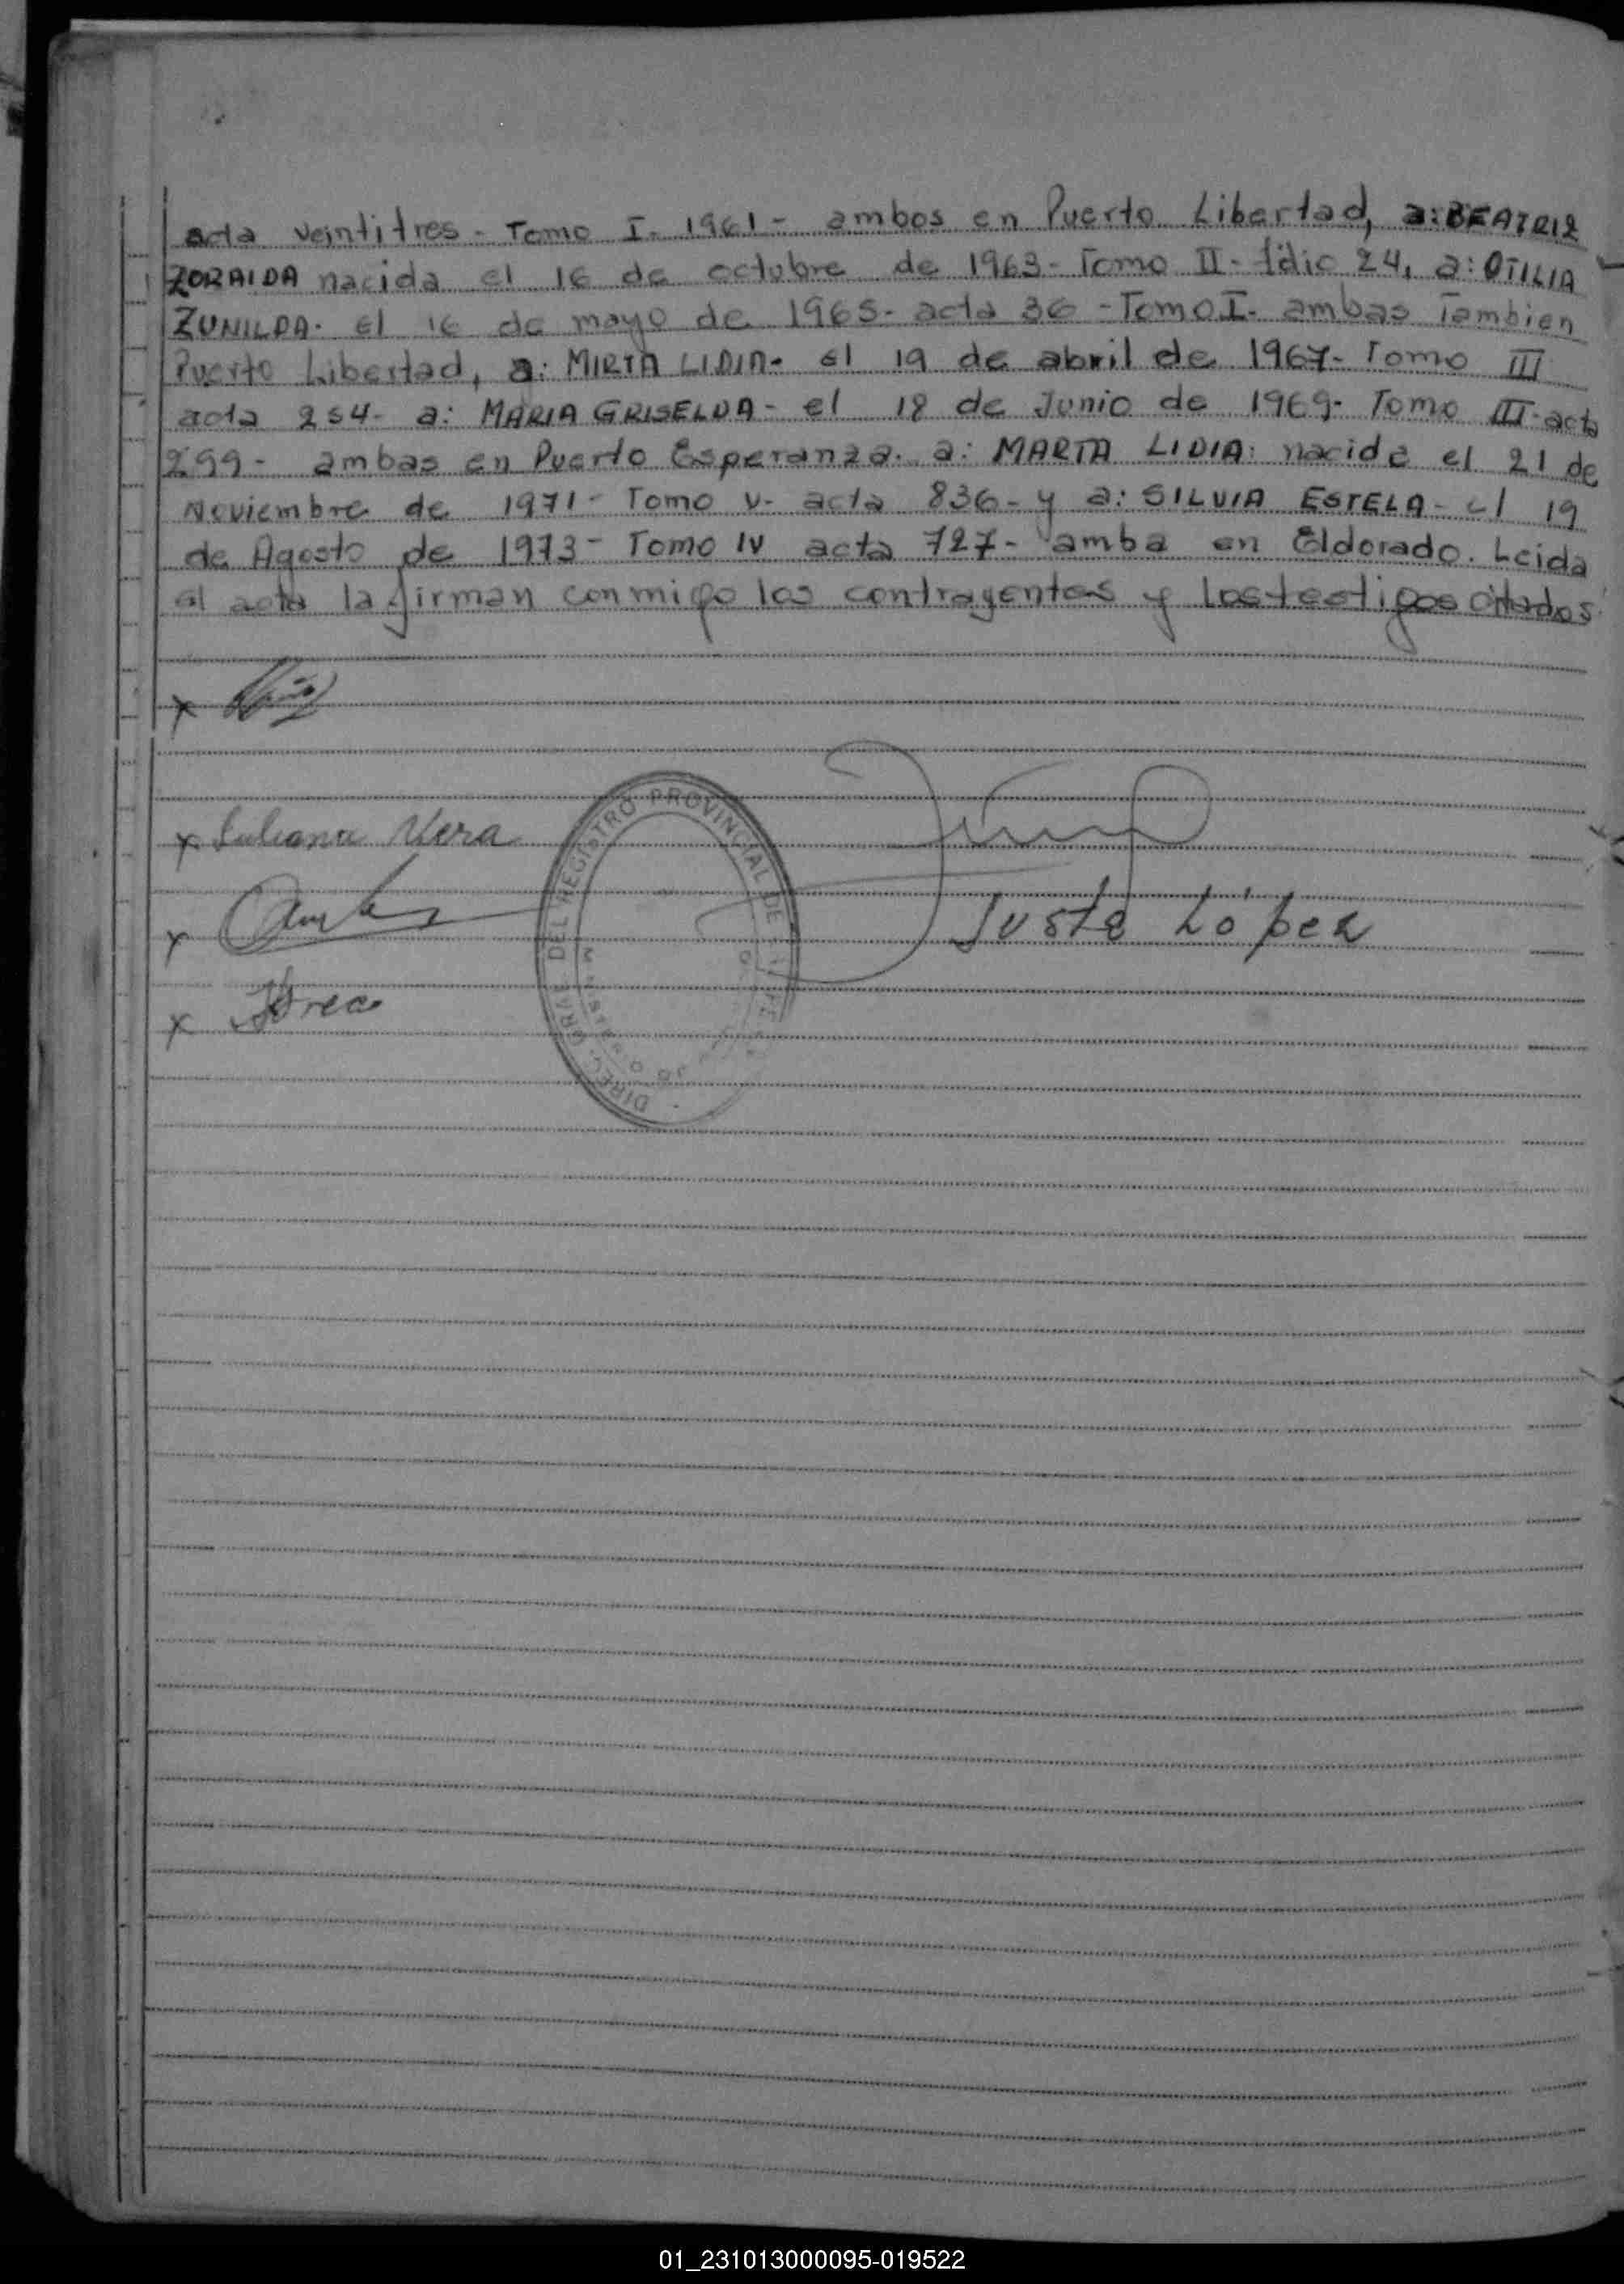 acta veintitres - Tomo I - 1961 - ambos en Puerto Libertad, a: BEATRIZ
ZORAIDA nacida el 16 de octubre de 1963 - Tomo II - folio 24, a: OTILIA
ZUNILDA. el 16 de mayo de 1965 - acta 36 - Tomo I - ambas Tambien
Puerto Libertad, a: MIRTA LIDIA - el 19 de abril de 1967 - Tomo III
acta 254 - a: MARIA GRISELDA - el 18 de Junio de 1969 - Tomo III - acta
299 - ambas en Puerto Esperanza. a: MARTA LIDIA: nacida el 21 de
Noviembre de 1971 - Tomo V - acta 836 - y a: SILVIA ESTELA - el 19
de Agosto de 1973 - Tomo IV acta 727 - amba en Eldorado. Leida
el acta la firman conmigo los contrayentes y los testigos citados
x
x Juliana Vera
x
x
Justo López
DIREC. GRAL. DEL REGISTRO PROVINCIAL DE
01_231013000095-019522